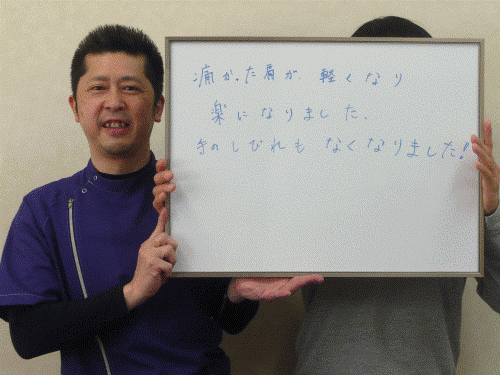 痛かった肩が、軽くなり
楽になりました。
手のしびれも なくなりました!